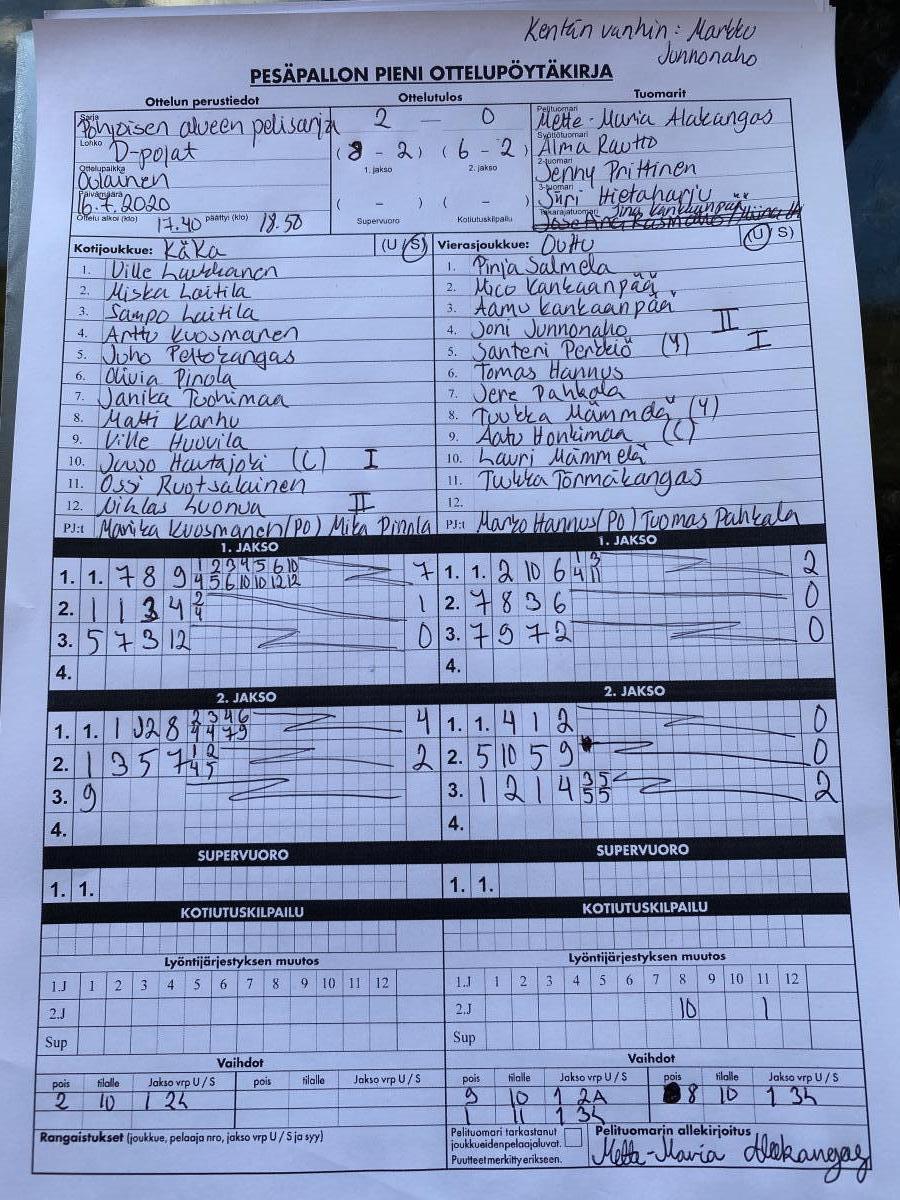 Kentän vanhin: Markku
Junnonaho
PESÄPALLON PIENI OTTELUPÖYTÄKIRJA
Ottelun perustiedot
Ottelutulos
Tuomarit
Sarja
Pohjoisen alueen pelisarja
Lohko
D-pojat
Ottelupaikka
Oulainen
Päivämäärä
16.7.2020
Ottelu alkoi (klo) 17.40 päättyi (klo) 18.50
2 — 0
(8 - 2) (6 - 2)
1. jakso 2. jakso
( - ) ( - )
Supervuoro Kotiutuskilpailu
Pelituomari
Mette-Maria Alakangas
Syöttötuomari
Alma Rautto
2-tuomari
Jenny Prittinen
3-tuomari
Siiri Hietaharju
Takarajatuomari
Kotijoukkue: KäKa (U/S)
1. Ville Luukkanen
2. Miska Laitila
3. Sampo Laitila
4. Arttu Kuosmanen
5. Juho Peltokangas
6. Olivia Pirola
7. Janika Tuohimaa
8. Matti Kanhu
9. Ville Huovila
10. Juuso Hautajoki (C) I
11. Ossi Ruotsalainen
12. Niklas Luonua II
PJ:t Marika Kuosmanen (PO) Mika Pirola
Vierasjoukkue: Oultu (U/S)
1. Pinja Salmela
2. Mico Kankaanpää
3. Aamu Kankaanpää
4. Joni Junnonaho II
5. Santeri Perkiö (Y) I
6. Tomas Hannus
7. Jere Pahkala
8. Tuukka Mämmelä (Y)
9. Aatu Honkimaa (C)
10. Lauri Mämmelä
11. Tuukka Törmäkangas
12.
PJ:t Marko Hannus (PO) Tuomas Pahkala
1. JAKSO
1. 1. 7 8 9 1 2 3 4 5 6 10 7
4 5 6 10 10 12 12
2. 1 1 3 4 2 1
4
3. 5 7 3 12 0
4.
1. JAKSO
1. 1. 2 10 6 1 3 2
4 11
2. 7 8 3 6 0
3. 7 9 7 2 0
4.
2. JAKSO
1. 1. 1 12 8 2 3 4 6 4
4 4 7 9
2. 1 3 5 7 1 2 2
4 5
3. 9
4.
2. JAKSO
1. 1. 4 1 2 0
2. 5 10 5 9 0
3. 1 2 1 4 3 5 2
5 5
4.
SUPERVUORO
1. 1.
SUPERVUORO
1. 1.
KOTIUTUSKILPAILU
KOTIUTUSKILPAILU
Lyöntijärjestyksen muutos
1.J 1 2 3 4 5 6 7 8 9 10 11 12
2.J
Sup
Lyöntijärjestyksen muutos
1.J 1 2 3 4 5 6 7 8 9 10 11 12
2.J 10 1
Sup
Vaihdot
pois tilalle Jakso vrp U / S pois tilalle Jakso vrp U / S
2 10 1 2L
Vaihdot
pois tilalle Jakso vrp U / S pois tilalle Jakso vrp U / S
9 10 1 2A 8 10 1 3L
1 11 1 3L
Rangaistukset (joukkue, pelaaja nro, jakso vrp U / S ja syy)
Pelituomari tarkastanut
joukkueidenpelaajaluvat.
Puutteet merkitty erikseen.
Pelituomarin allekirjoitus
Mette-Maria Alakangas